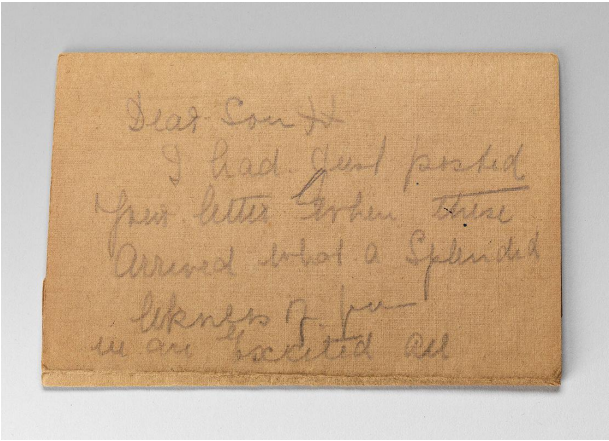 Dear Son
I had just posted
Your letter when these
Arrived what a Splendid
likness of you
we are Excited All